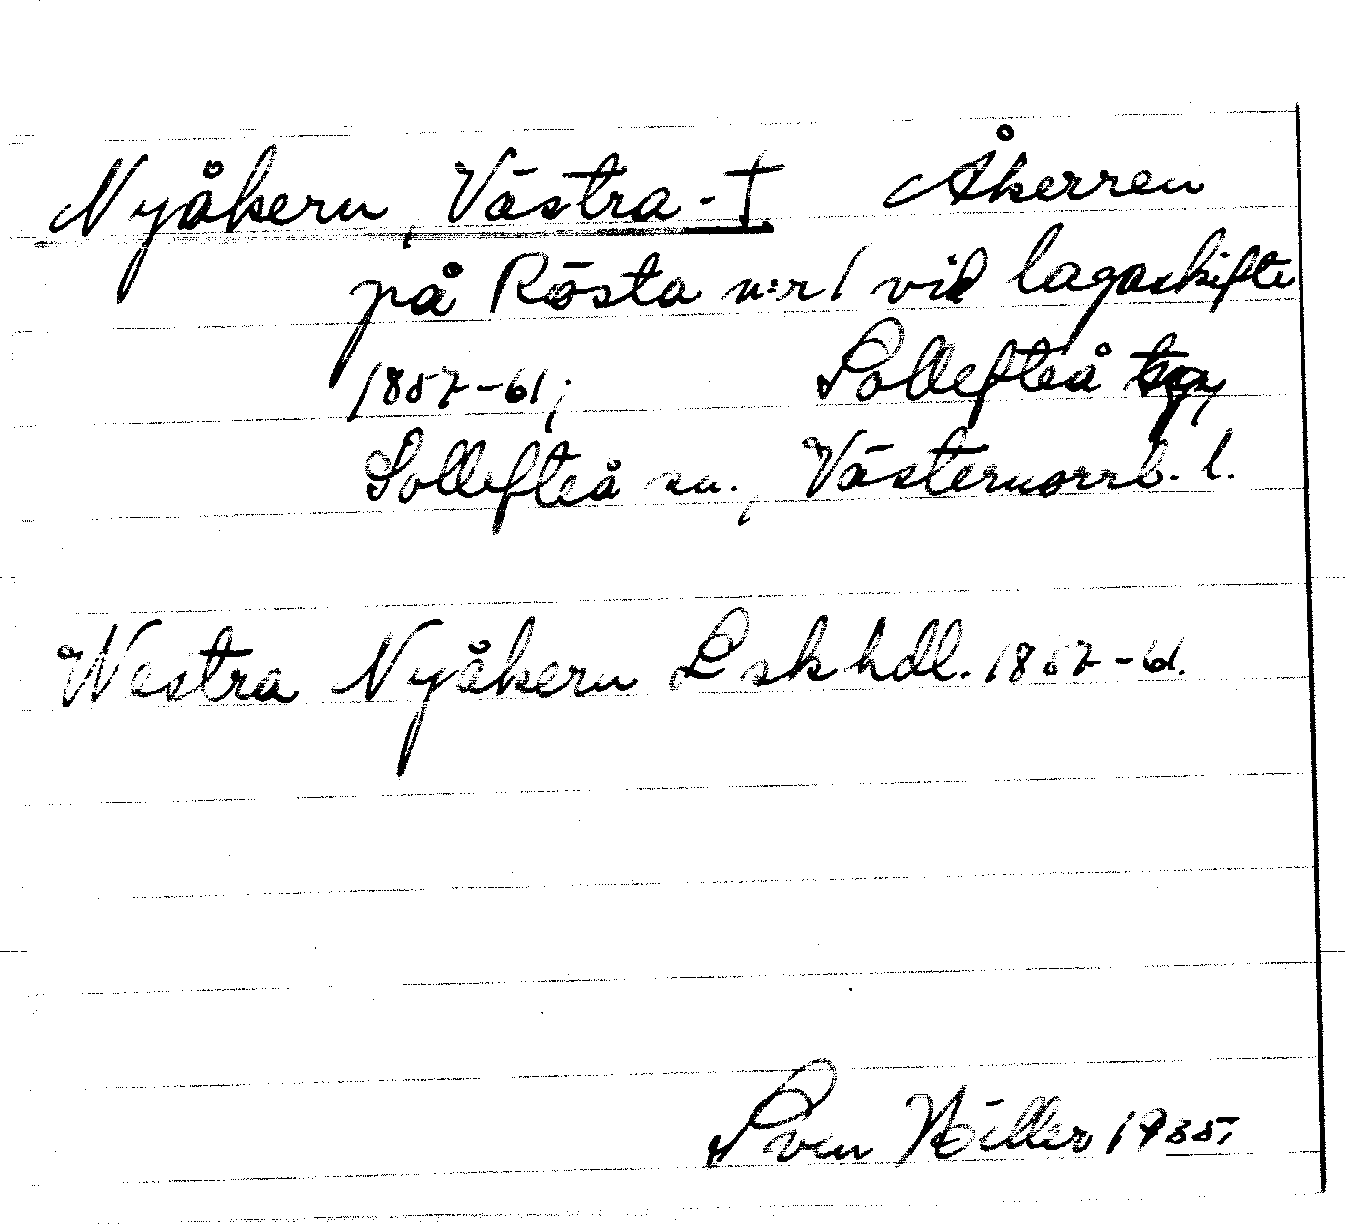 Nyåkern, Västra - † Åkerren
på Rösta n:r 1 vid lagaskifte
1857-61; Sollefteå tgg,
Sollefteå sn., Västernorrl. l.
Westra Nyåkern Lskhdl. 1857-61.
Sven 1935.